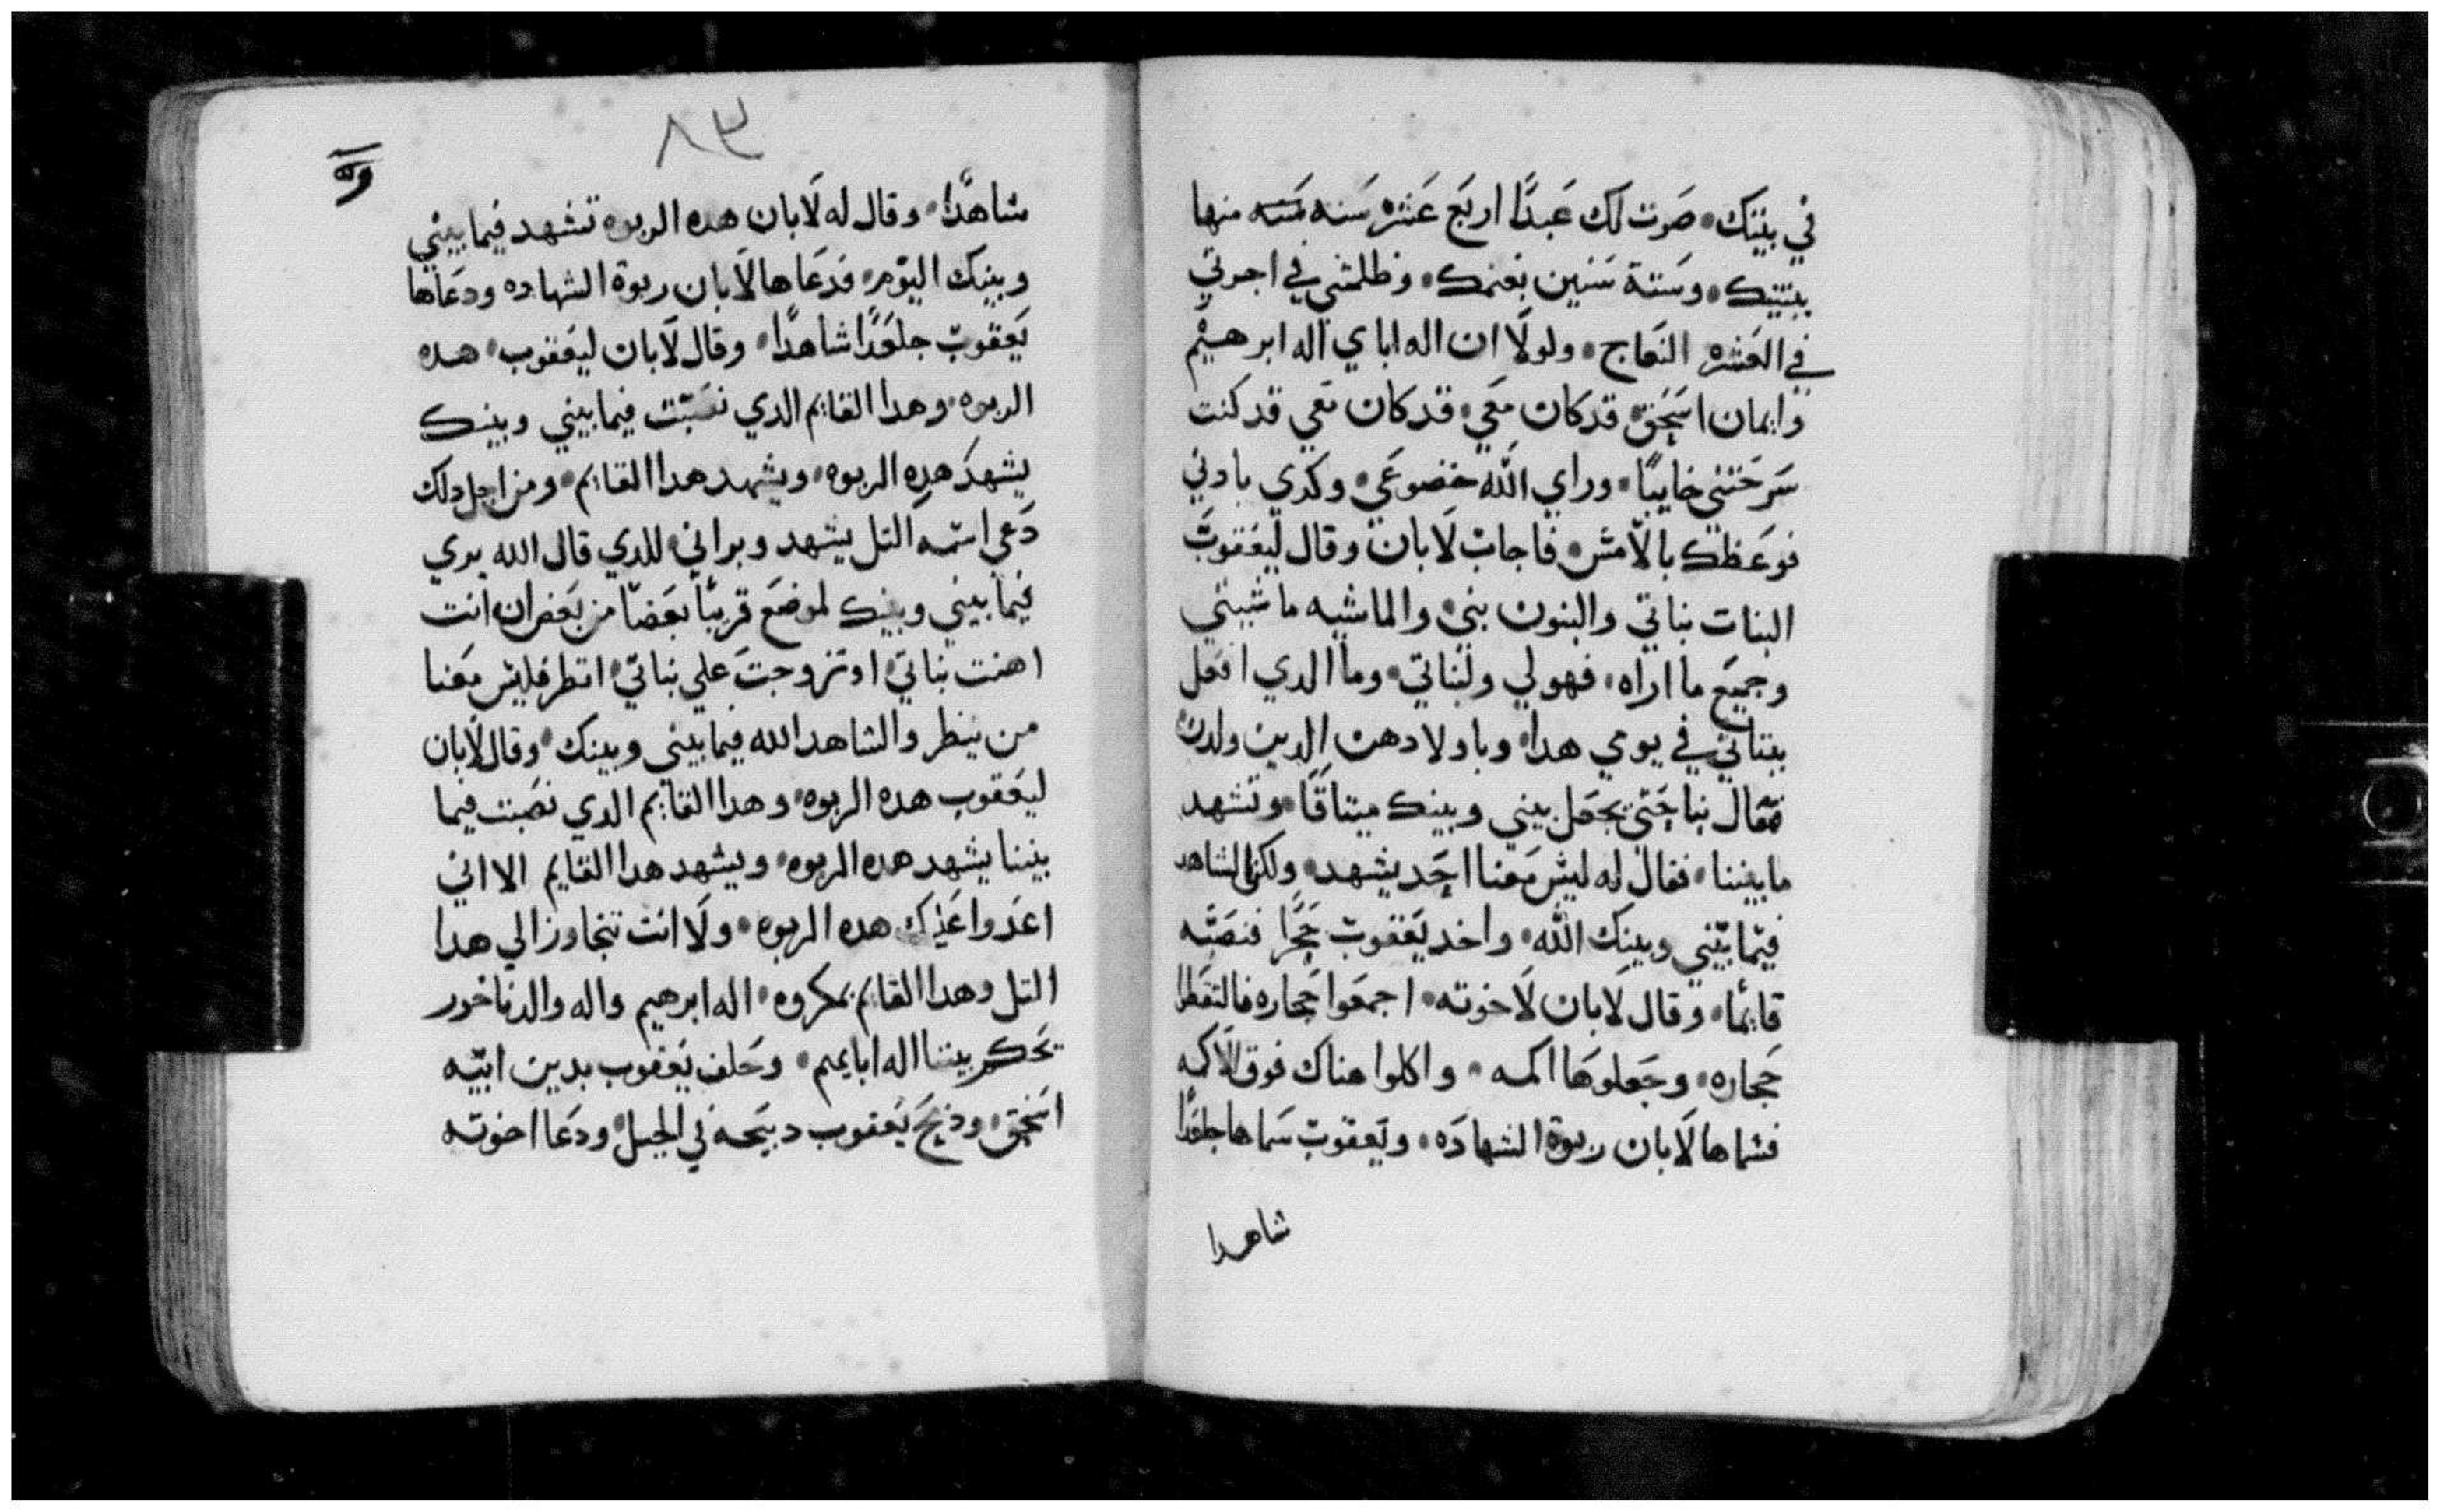 في بيتك، صرت لك عبدًا اربع عشره سنه منها
ببنتيك، وستة سنين بغنمك، وظلمتني في اجرتي
في العشره النعاج، ولولا ان اله اباي اله ابرهيم
وايمان اسحق قد كان معي، قد كان معي قد كنت
سرحتني خايبًا، وراي الله خضوعي، وكدي يادني
فوعظك بالامس، فاجاب لابان وقال ليعقوب
البنات بناتي والبنون بني، والماشيه ماشيتي
وجميع ما اراه، فهو لي ولبناتي، وما الدي افعل
ببناتي في يومي هدا، وباولادهن الدين ولدن
فتعال بنا حتى نجعل بيني وبينك ميتاقًا، وتشهد
ما بيننا، فقال له ليس معنا احد يشهد، ولكن الشاهد
فيما بيني وبينك الله، واخد يعقوب حجرًا فنصبه
قايمًا، وقال لابان لاخوته، اجمعوا حجاره فالتقطوا
حجاره، وجعلوها اكمه، واكلوا هناك فوق الاكمه
فسماها لابان ربوة الشهاده، ويعقوب سماها جلعدًا
شاهدا
٨٣
شاهدًا، وقال له لابان هده الربوه تشهد فيما بيني
وبينك اليوم، فدعاها لابان ربوة الشهاده ودعاها
يعقوب جلعدًا شاهدًا، وقال لابان ليعقوب، هده
الربوه، وهدا القايم الدي نصبت فيما بيني وبينك
يشهد هده الربوه، ويشهد هدا القايم، ومن اجل دلك
دعي اسمه التل يشهد ويراني، للدي قال الله يري
فيما بيني وبينك لموضع قريبًا بعضًا من بعض ان انت
اهنت بناتي، او تزوجت علي بناتي، انظر فليس معنا
من ينظر والشاهد الله فيما بيني وبينك، وقال لابان
ليعقوب هده الربوه، وهدا القايم الدي نصبت فيما
بيننا يشهد هده الربوه، ويشهد هدا القايم الا اني
اعدوا عليك هده الربوه، ولا انت تتجاوز الي هدا
التل وهدا القايم بمكروه، اله ابرهيم واله والدنا خور
يحكم بيننا اله ابايهم، وحلف يعقوب بدين ابيه
اسحق، وذبح يعقوب دبيحه في الجبل، ودعا اخوته